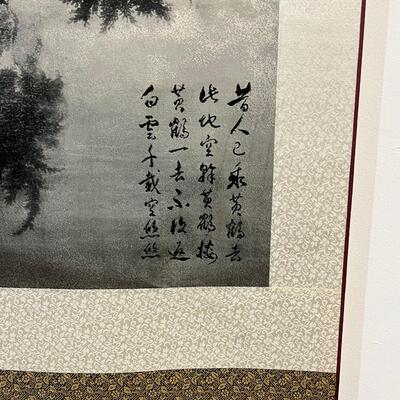 昔人已乘黄鶴去
此地空餘黄鶴樓
黄鶴一去不復返
白雲千載空悠悠